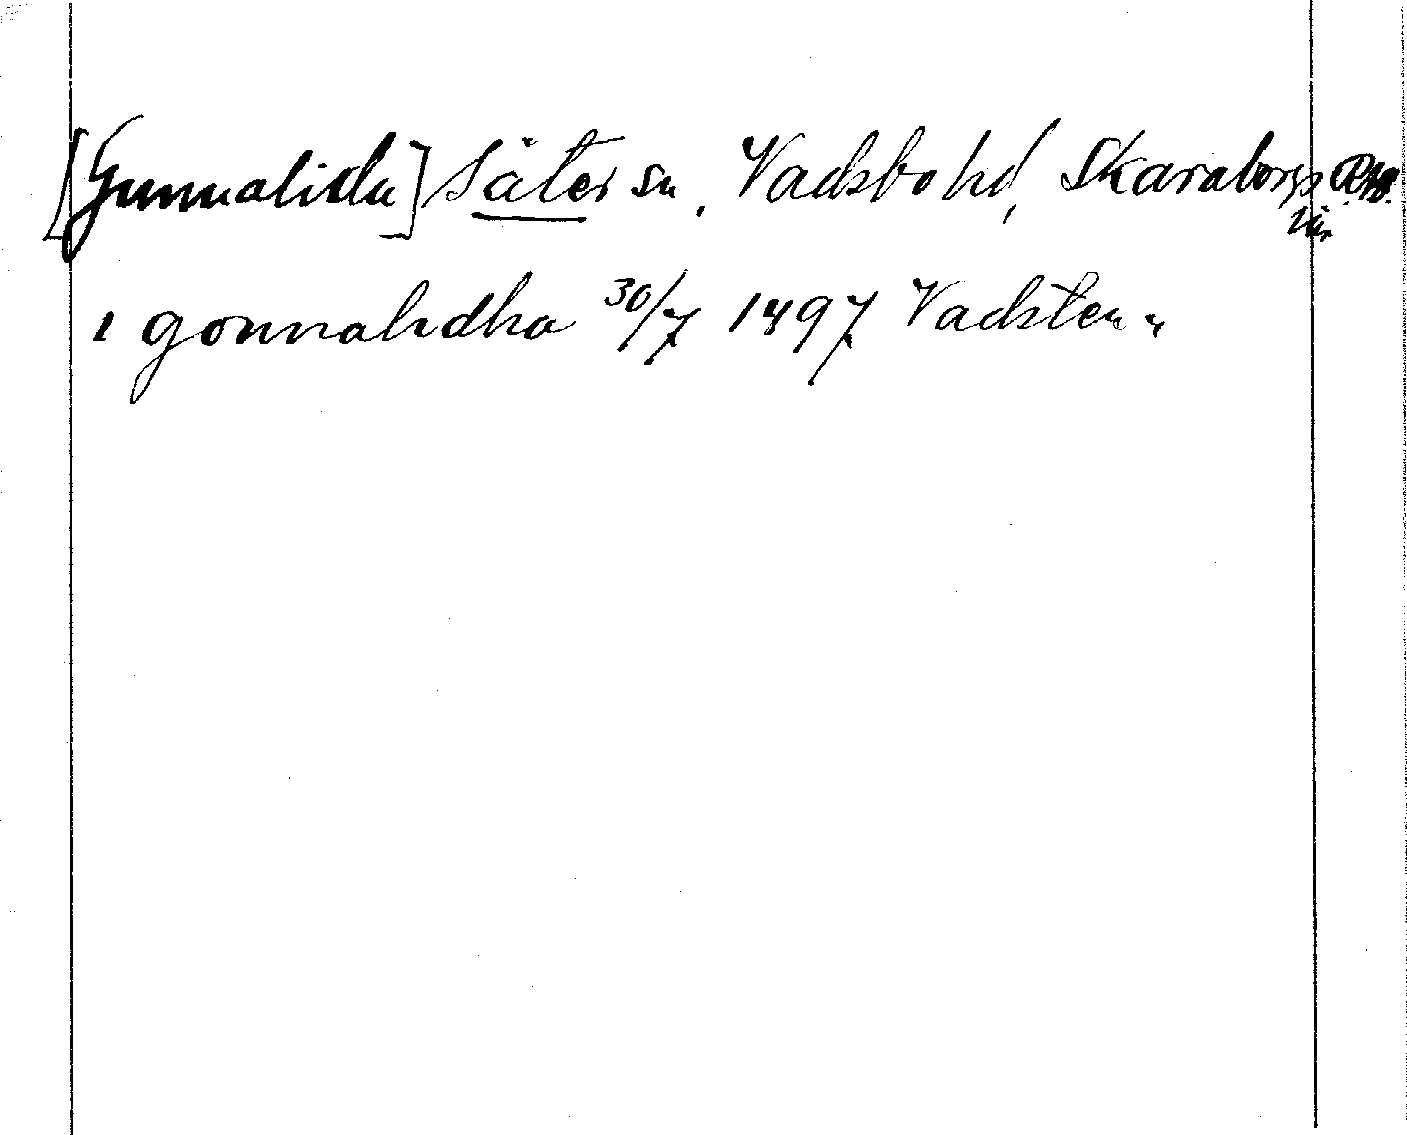 [Gunnalida] Säter sn, Vadsbo hd, Skaraborgs
län
i gonnalidha 30/7 1497 Vadstena